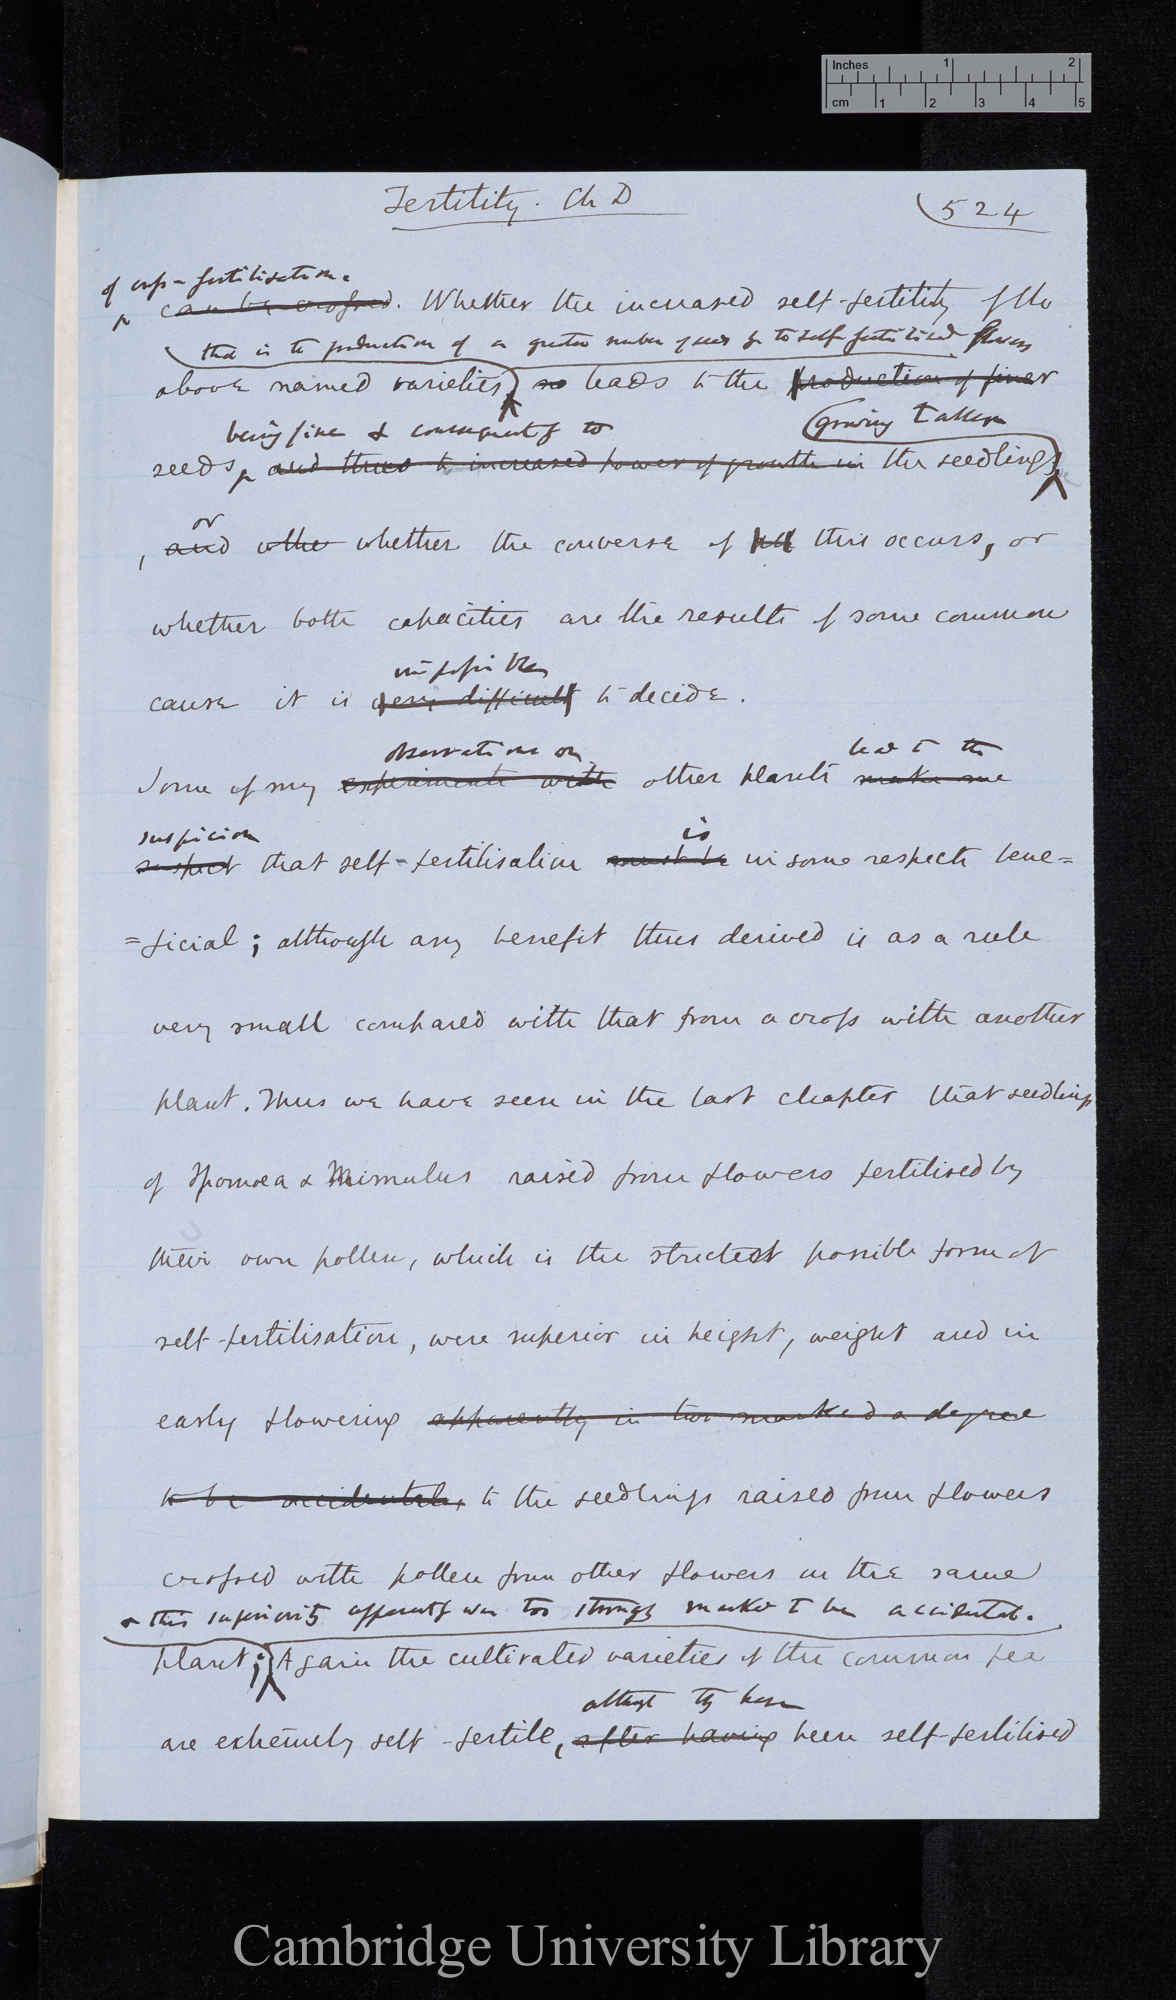 Inches 1 2
cm 1 2 3 4 5
Fertility. Ch D
524
of cross-fertilisation.
can be crossed. Whether the increased self-fertility of the
that is the production of a greater number of seeds by the self-fertilised flowers
above named varieties, so leads to the production of finer
being fine & consequently to growing taller
seeds, and thus to increased power of growth in the seedlings
or
, and whe whether the converse of this occurs, or
whether both capacities are the results of some common
impossible
cause it is very difficult to decide.
observations on led to the
Some of my experiments with other plants make me
suspicion is
suspect that self-fertilisation must be in some respects bene=
=ficial; although any benefit thus derived is as a rule
very small compared with that from a cross with another
plant. Thus we have seen in the last chapter that seedlings
of Ipomoea & Mimulus raised from flowers fertilised by
their own pollen, which is the strictest possible form of
self-fertilisation, were superior in height, weight and in
early flowering apparently in too marked a degree
to be accidental, to the seedlings raised from flowers
crossed with pollen from other flowers on the same
& this superiority apparently was too strongly marked to be accidental.
plant; Again the cultivated varieties of the common pea
altho they have
are extremely self-fertile, after having been self-fertilised
Cambridge University Library